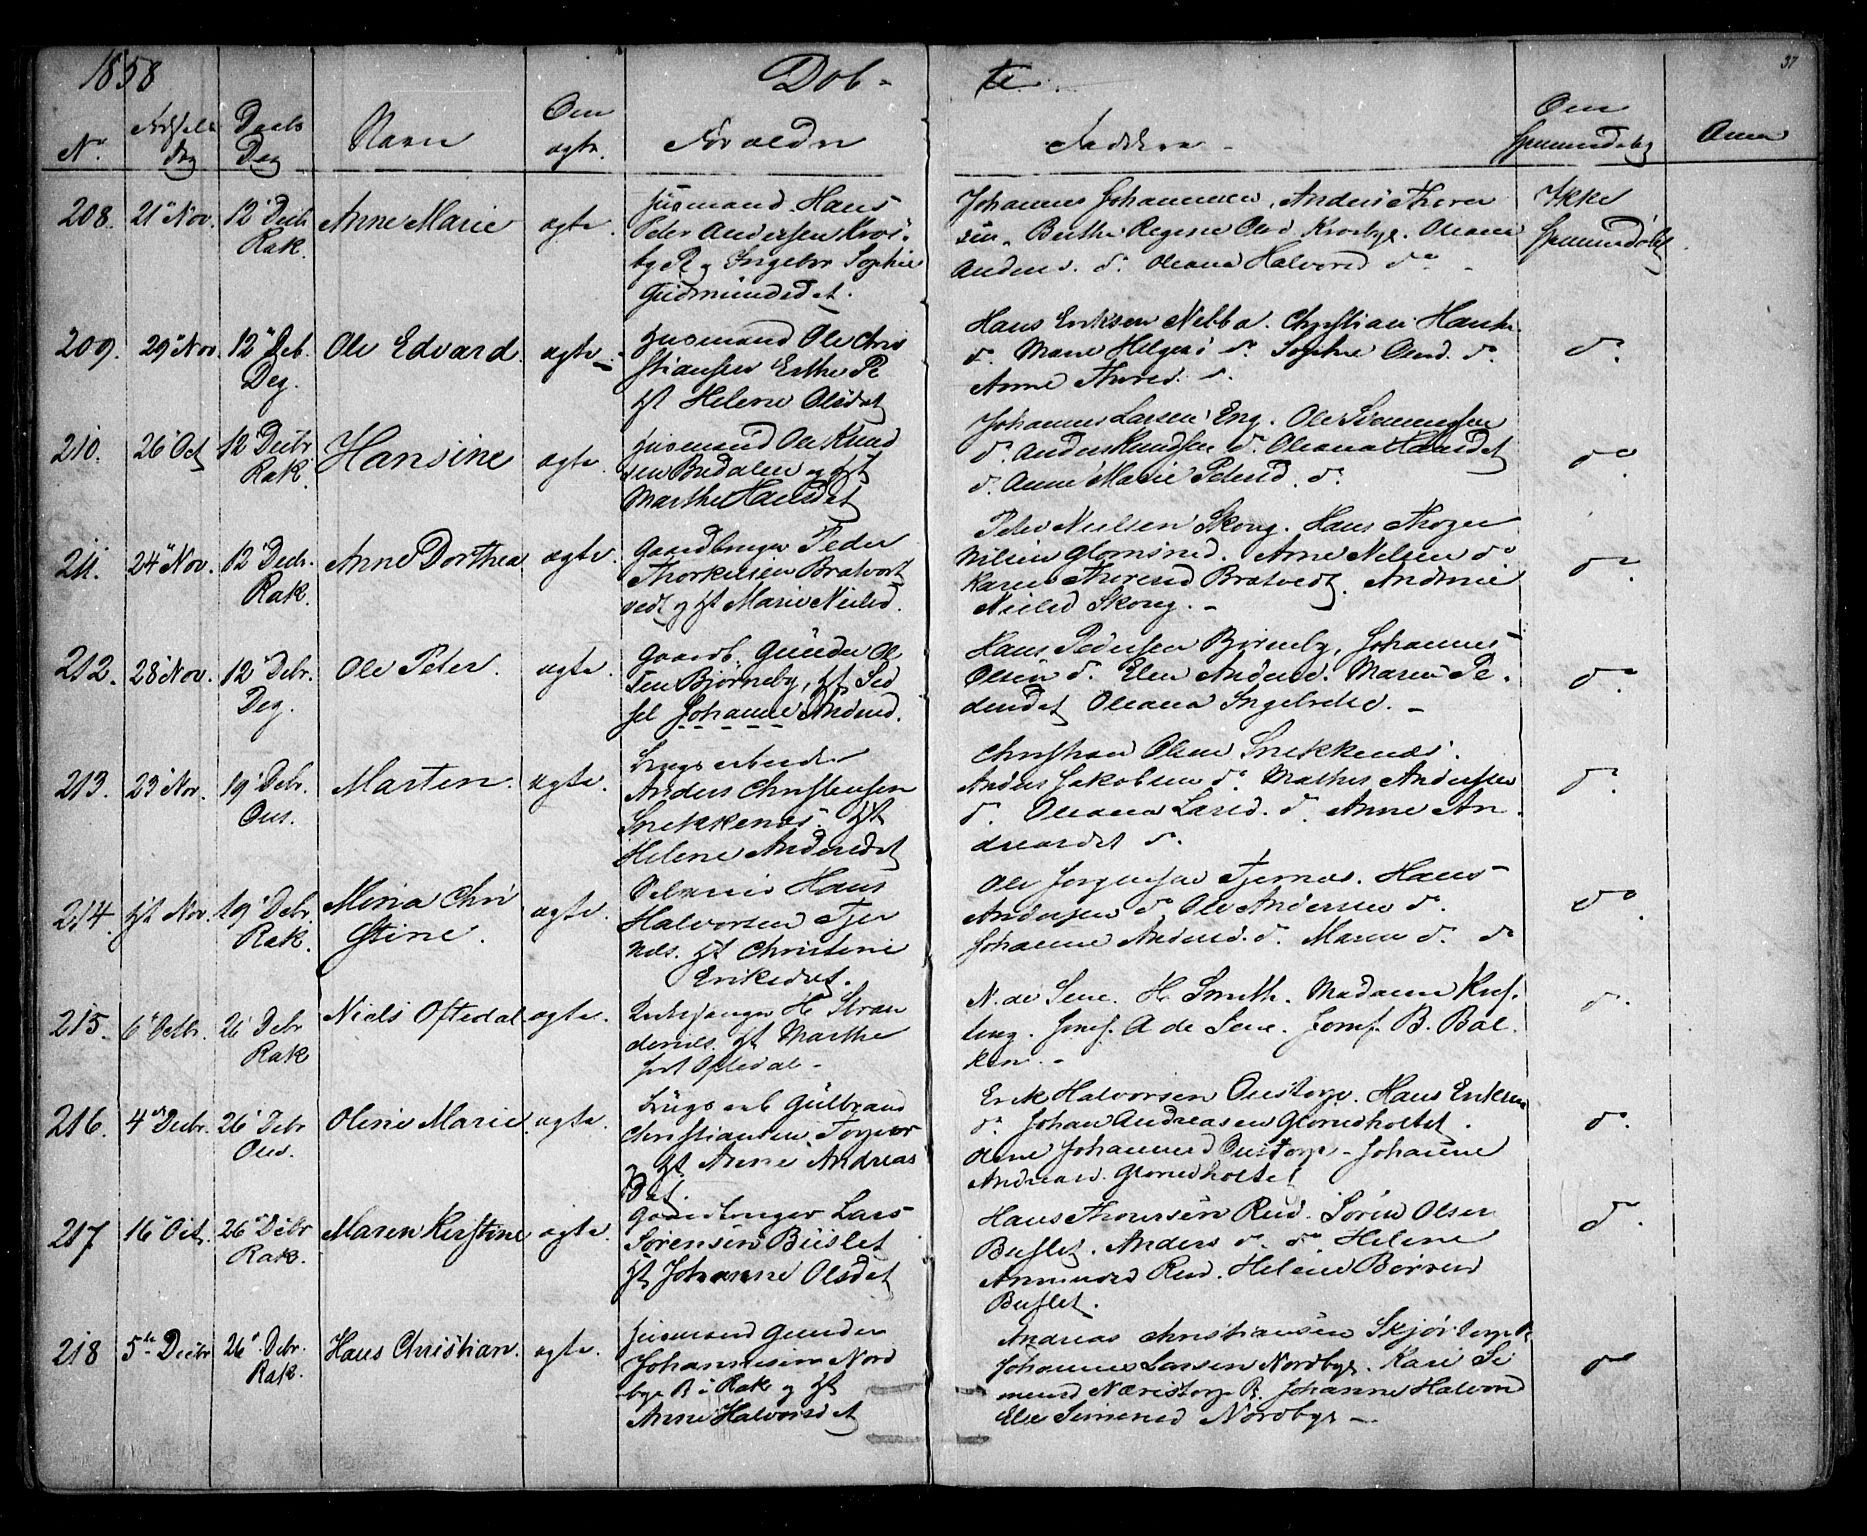 1858 Dob- te 37
No. Fødsels dag Daabs Dag Navn Om ægte. Forældre Faddere - Om Anm
208. 21 Nov. 12 Decbr Rak. Anne Marie ægte. Huusmand Hans
Peter Andersen Kros-
by
Gudmundsdat.
Johannes Johannesen, Anders Thore
sen. Berthe Regine Olsd Krosbye. Oleane
Anders. do. Oleana Halvorsd do
Ikke
209. 29 Nov. 12 Deb. Deg. Ole Edvard. ægte. Huusmand Ole Chri
stiansen
gft Helene Olsdat
Hans Eriksen Nebba. Christian Hans
do. Marie Helges do. Sophie Olsd. do.
Anne Thoresd. do.
do.
210. 26 Oct 12 Decbr Rak. Hansine ægte. Huusmand Ole Knud
sen Bredalen og gft
Marthe Hansdat
Johannes Larsen Eng. Ole Simensen
do. Anders Knudsen do. Oleana Hansdat
do. Anne Marie Petersd. do.
do.
211. 24 Nov. 12 Decbr. Rak. Anne Dorthea ægte. Gaardbruger Peder
Thorkelsen Bratvort
vedt og gft Marie Nielsd.
Peter Nielsen Skoug. Hans Thoger
Nilsen Glomsrød. Arne Nelsen do
Karen Thoresd Bratvedt. Andrine
Nielsd Skoug. -
do.
212. 28 Nov. 12 Debr. Deg. Ole Peter. ægte. Gaardb. Gunder Ol
sen Bjørneby, gft Sid
sel Johanne Andersd.
Hans Pedersen Bjørneby, Johannes
Olsen do. Elen Andersd. Maren Pe-
dersdat Oleana Ingebretsd. -
do.
213. 23 Nov. 19 Debr. Ous. Marten. ægte. Brugsarbeider
Anders Christensen
Snekkenæs. gft
Helene Andersdat
Christian Olsen Snekkenæs.
Anders Jakobsen do. Mathis Anderssen
do. Oleana Larsd. do. Anne An-
dreasdat do.
do.
214. Nov. 19 Debr. Rak. Mina Chri
stine. ægte. Hans
Halvorsen Tjer
næs. gft Christine
Eriksdat.
Ole Jørgensen Tjernæs. Hans
Andersen do. Ole Andersen do.
Johanne Andersd. do. Maren do. do
do.
215. 6 Octbr. 26 Debr Rak Niels Oftedal ægte. Kirkesanger H Stran
denæs. gft Marthe
født Oftedal -
N. de Seue. H Smith. Madame Kies
ling. Jomf. A de Seue. Jomf. B. Bal-
ken. -
do.
216. 4de Decbr. 26 Debr Ous. Oline Marie ægte. Brugsarb Gulbrand
Christiansen
og gft Anne Andreas
Dat.
Erik Halvorsen Oustorp. Hans Eriksen
do. Johan Andreasen Glomsholtet.
Oline Johannesd Oustorp - Johanne
Andreasd. Glomsholtet
do.
217 16 Oct. 26 Debr Rak. Maren Kirstine ægte. Gaardbruger Lars
Sørensen Buslet
gft Johanne Olsdat
Hans Thoresen Rud. Søren Olsen
Buslet. Anders do. do. Helene
Rud. Helene Børresd
Buslet.
do.
218 5te Decbr 26 Debr. Rak. Hans Christian. ægte. Huusmand Gunder
Johannesen Nord
bye R i Rak og gft
Anne Halvorsdat
Andreas Christiansen Skjørtorp
Johannes Larsen Nordbye. Kari Si
mensd Næristorp R. Johanne Halvorsd
Else Simensd Nordbye -
do